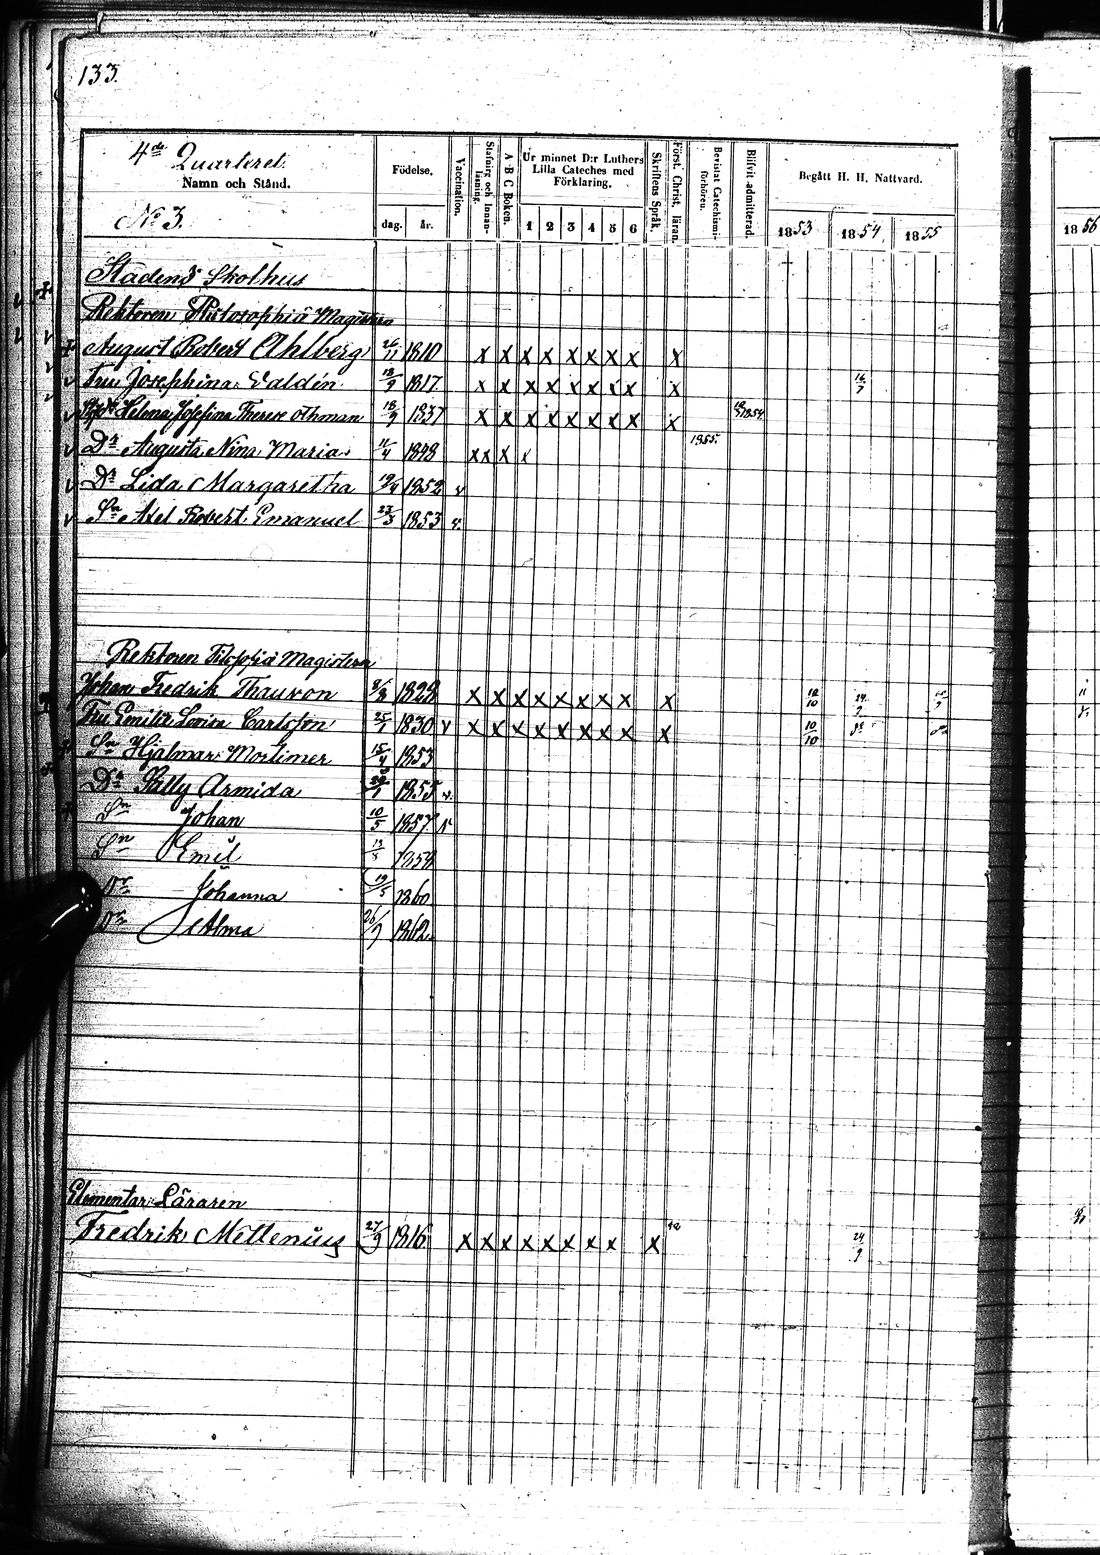 133.
4de Quarteret.
Namn och Stånd.
No 3.
Födelse.
dag. år.
Vaccination.
Stafning och innanläsning.
A B C Boken.
Ur minnet D:r Luthers Lilla Cateches med Förklaring.
1 2 3 4 5 6
Skriftens Språk.
Först. Christ. läran.
Bevistat Catechismiförhören.
Blifvit admitterad.
Begått H. H. Nattvard.
1853 1854 1855
1856
Stadens Skolhus
Rektoren Philosophiæ Magistern
August Robert Ahlberg 26/11 1810 x x x x x x x x x
Fru Josephina Valdén 18/9 1817 x x x x x x x x x
Helena Josefina Therese Othman 18/9 1837 x x x x x x x x x 1854
Dr Augusta Nina Maria 11/4 1848 x x x x 1855.
Dr Lida Margaretha 1852 v
Sn Axel Robert Emanuel 23/3 1853 v.
Rektoren Filosofiä Magistern
Johan Fredrik Thauvon 1828 x x x x x x x x x
Fru Emilia Lovisa Carlsson 1830 v x x x x x x x x x 10/10
Sn Hjalmar Mortimer 15/4 1853
Dr Sally Armida 1855 v.
Sn Johan 10/5 1857 v
Sn Emil 1858
Dr Johanna 19/5 1860
Dr Alma 26/9 1862
Elementar Läraren
Fredrik Mellenius 27/9 1816 x x x x x x x x x 24/9